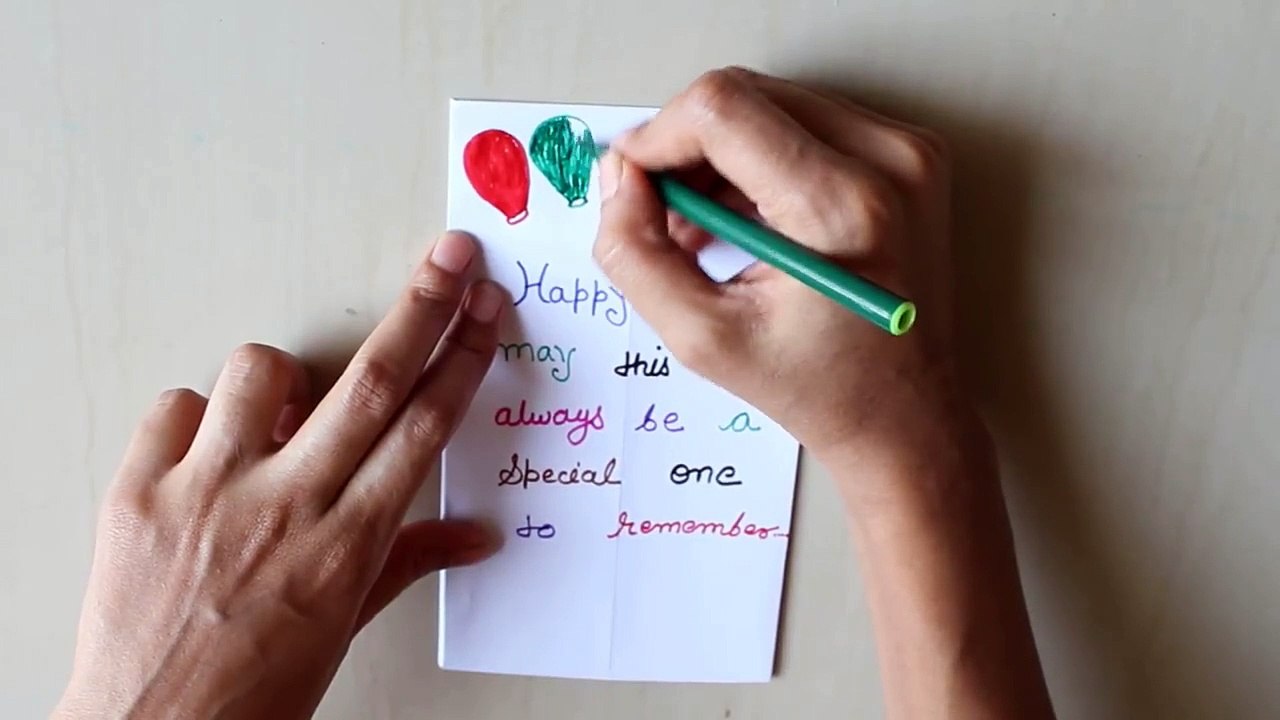 Happy
may this
always be a
Special one
to remember...